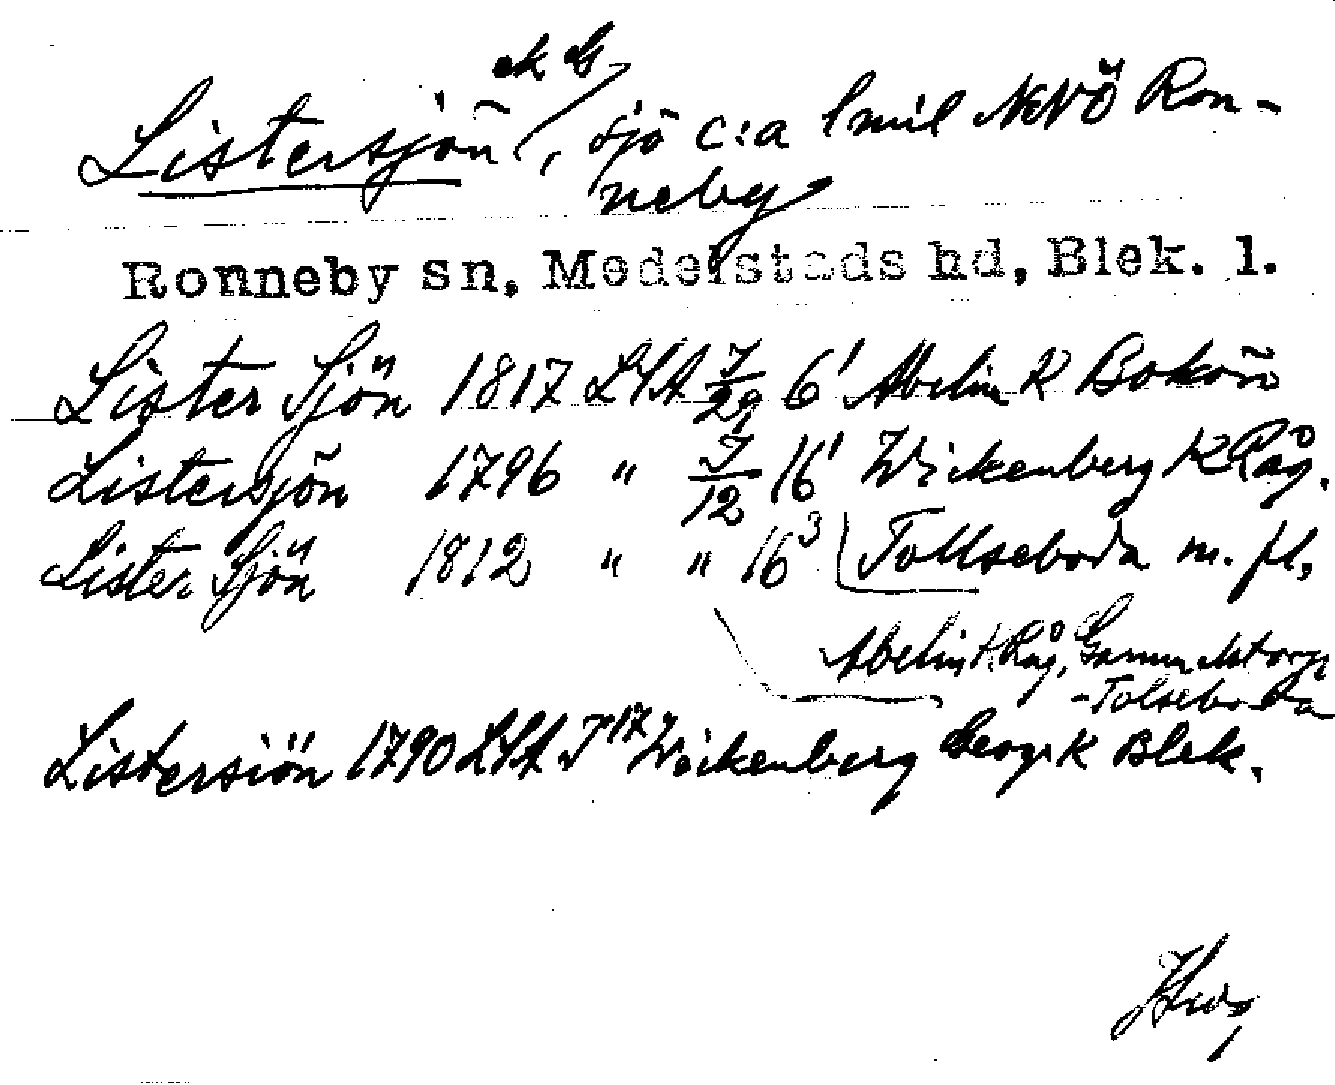 ek G
Listersjön, sjö c:a 1 mil NNÖ Ron-
neby
Ronneby sn, Medelstads hd, Blek. l.
Lister Sjön 1817 LSA J/29 6¹ Abelin K Bokön
Listersjön 1796 " J/12 16¹ Wickenberg K Råg.
Lister Sjön 1812 " " 16³ Tollseboda m. fl,
Abelin K Råg, Gammelstorp
-Tolseboda
Listersiön 1790 LSA J 17 Wickenberg Geogr K Blek.